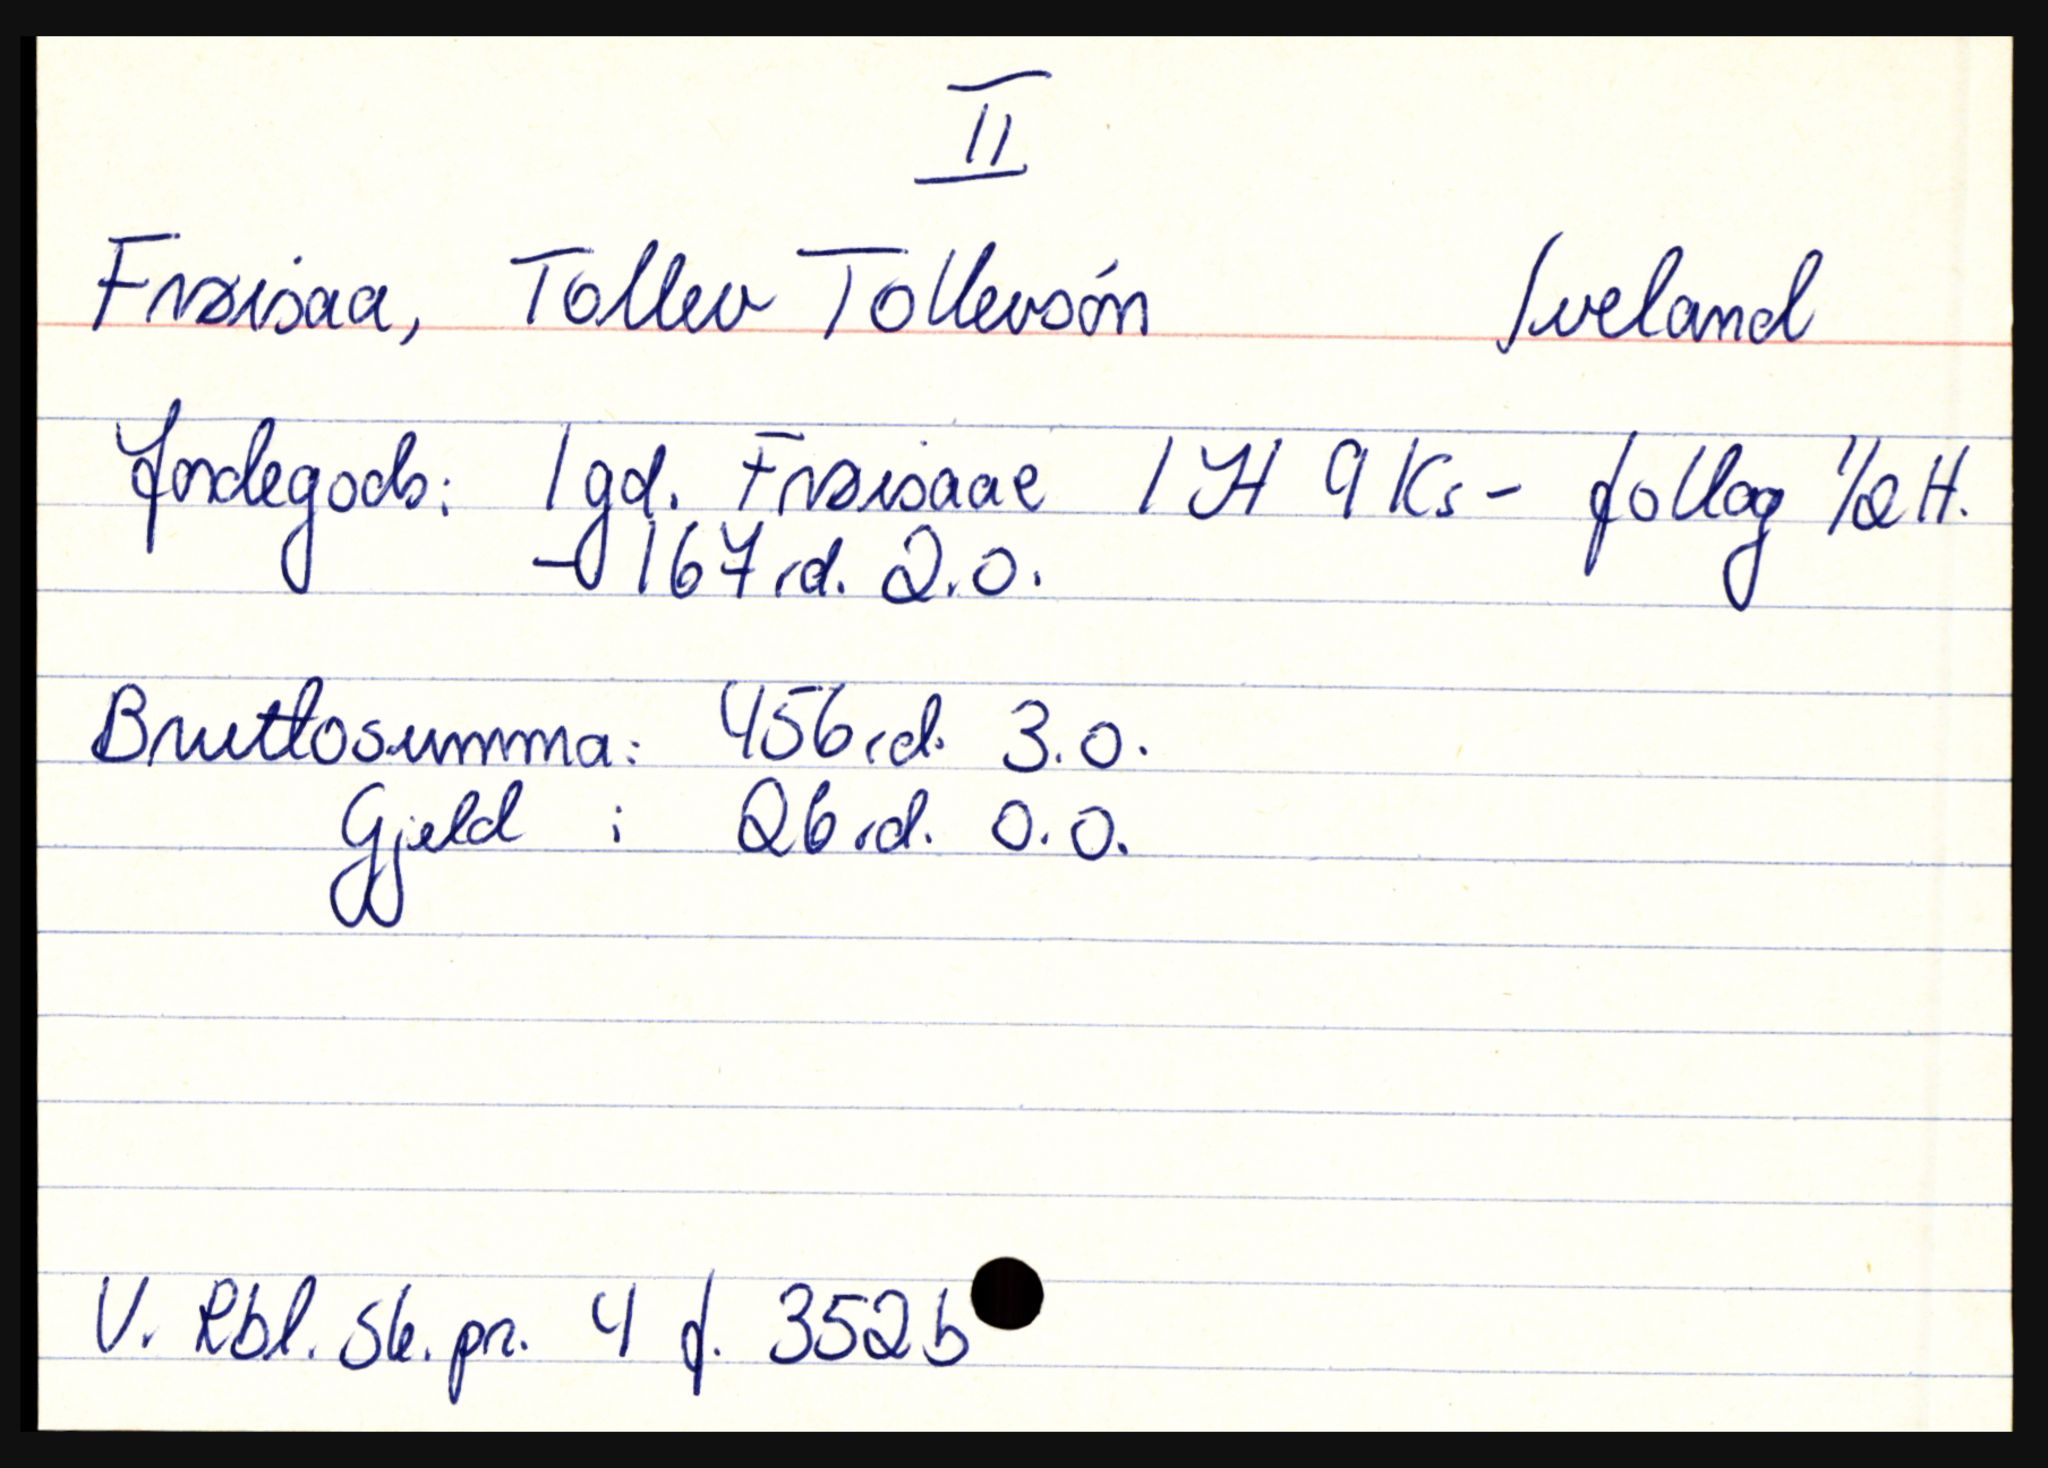 II
Frøisaa, Tollev Tollevsón Iveland
Jordegods: 1 gd. Frøisaae 1 H 9 Ks - follag 1/2 H.
- 167 rd. 2.0.
Bruttosumma: 456 rd. 3.0.
Gjeld : 26 rd. 0.0.
V. Rbl. sk. pr. 4 f. 352 b